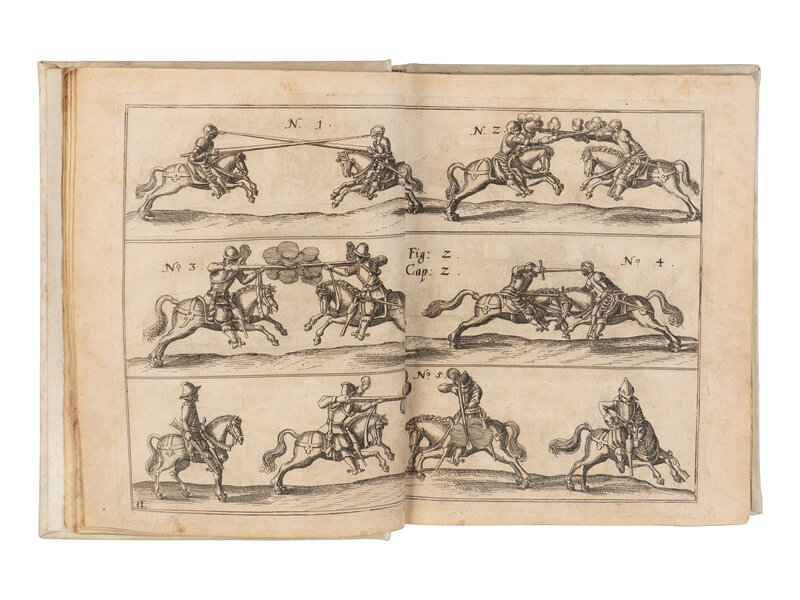 N. 1.
N. 2
No 3.
Fig: 2.
Cap: 2.
No 4.
No 5.